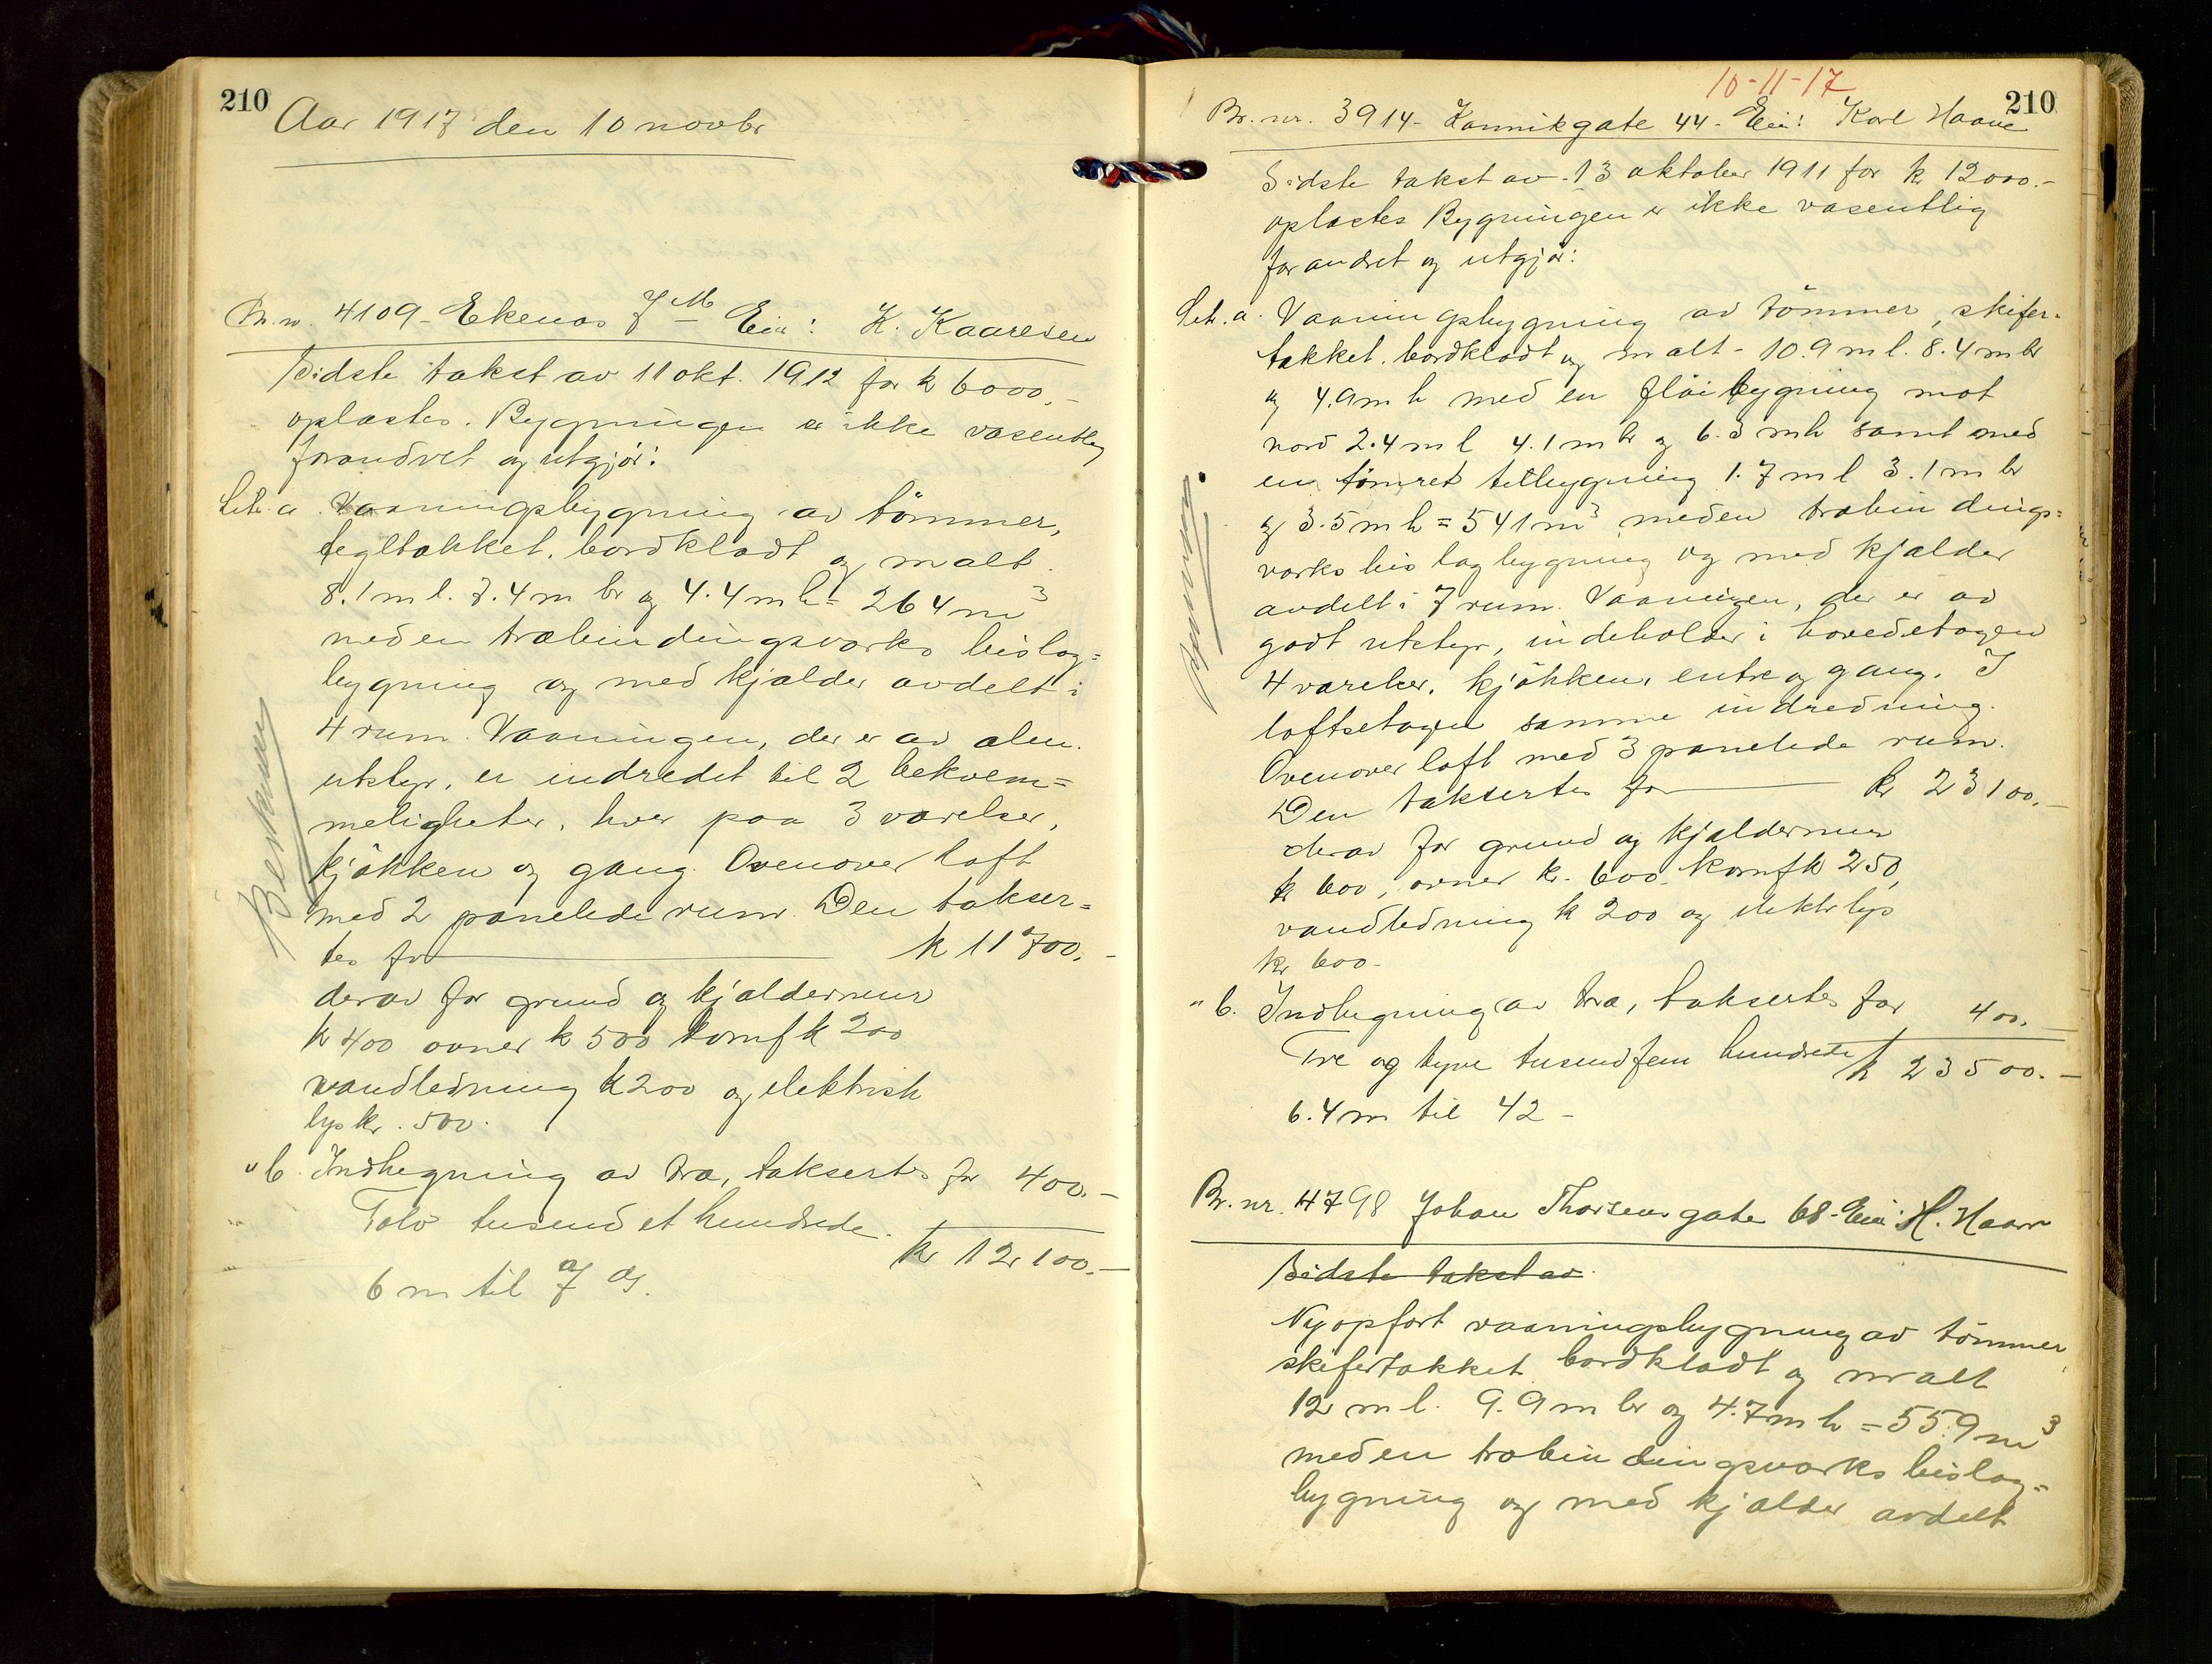 210
Aar 1917 den 10 novbr
Br. nr. 4109 - Ekenæs 7M Eiu: K. Kaaresen
Sidste takst av 11 okt. 1912 for k 6000.-
oplæstes. Bygningen er ikke væsentlig
forandret og utgjør:
Litr. a. Vaaningsbygning av tømmer,
tegltækket, bordklædt og malt.
8.1 m l. 7.4 m br og 4.4 m h = 264 m³
med en træbindingsverks bislag=
bygning og med kjælder avdelt i
4 rum. Vaaningen, der er av alm.
utstyr, er indredet til 2 bekvem=
meligheter, hver paa 3 værelser,
kjøkken og gang. Ovenover loft
med 2 panelede rum. Den takser=
tes for k 11 700.-
derav for grund og kjældermur
k 400 ovner k 500 komf k 200
vandledning k 200 og elektrisk
lys kr. 500.
" b. Indhegning av træ, taksertes for 400.-
Tolv tusend et hundrede. kr 12 100.-
6 m til 7 d.
210
10-11-17
Br. nr. 3914 - Kannikgate 44 - Eiu: Karl Haave
Sidste takst av 13 oktober 1911 for k 12000.-
oplæstes Bygningen er ikke væsentlig
forandret og utgjør:
Litr. a. Vaaningsbygning av tømmer, skifer=
tækket, bordklædt og malt - 10.9 m l. 8.4 m br
og 4.9 m h med en fløibygning mot
nord 2.4 m l 4.1 m br og 6.3 m h samt med
en tømret tilbygning 1.7 m l 3.1 m br
og 3.5 m h = 541 m³ med en træbindings=
verks bislagbygning og med kjælder
avdelt i 7 rum. Vaaningen, der er av
godt utstyr, indeholder i hovedetagen
4 værelser, kjøkken, entre og gang. I
loftsetagen samme indredning.
Ovenover loft med 3 panelede rum.
Den taksertes for kr 23100.-
derav for grund og kjældermur
k 600, ovner k. 600. komf k 250,
vandledning k 200 og elektr lys
kr 600.
" b. Indhegning av træ, taksertes for 400.-
Tre og tyve tusend fem hundrede k 23500.-
6.4 m til 42 -
Br. nr. 4798 Johan Thorsens gate 68 - Eiu: H. Haave
Sidste takst av
Ny opført vaaningsbygning av tømmer
skifertækket bordklædt og malt
12 m l. 9.9 m br og 4.7 m h = 559 m³
med en træbindingsverks bislag=
bygning og med kjælder avdelt